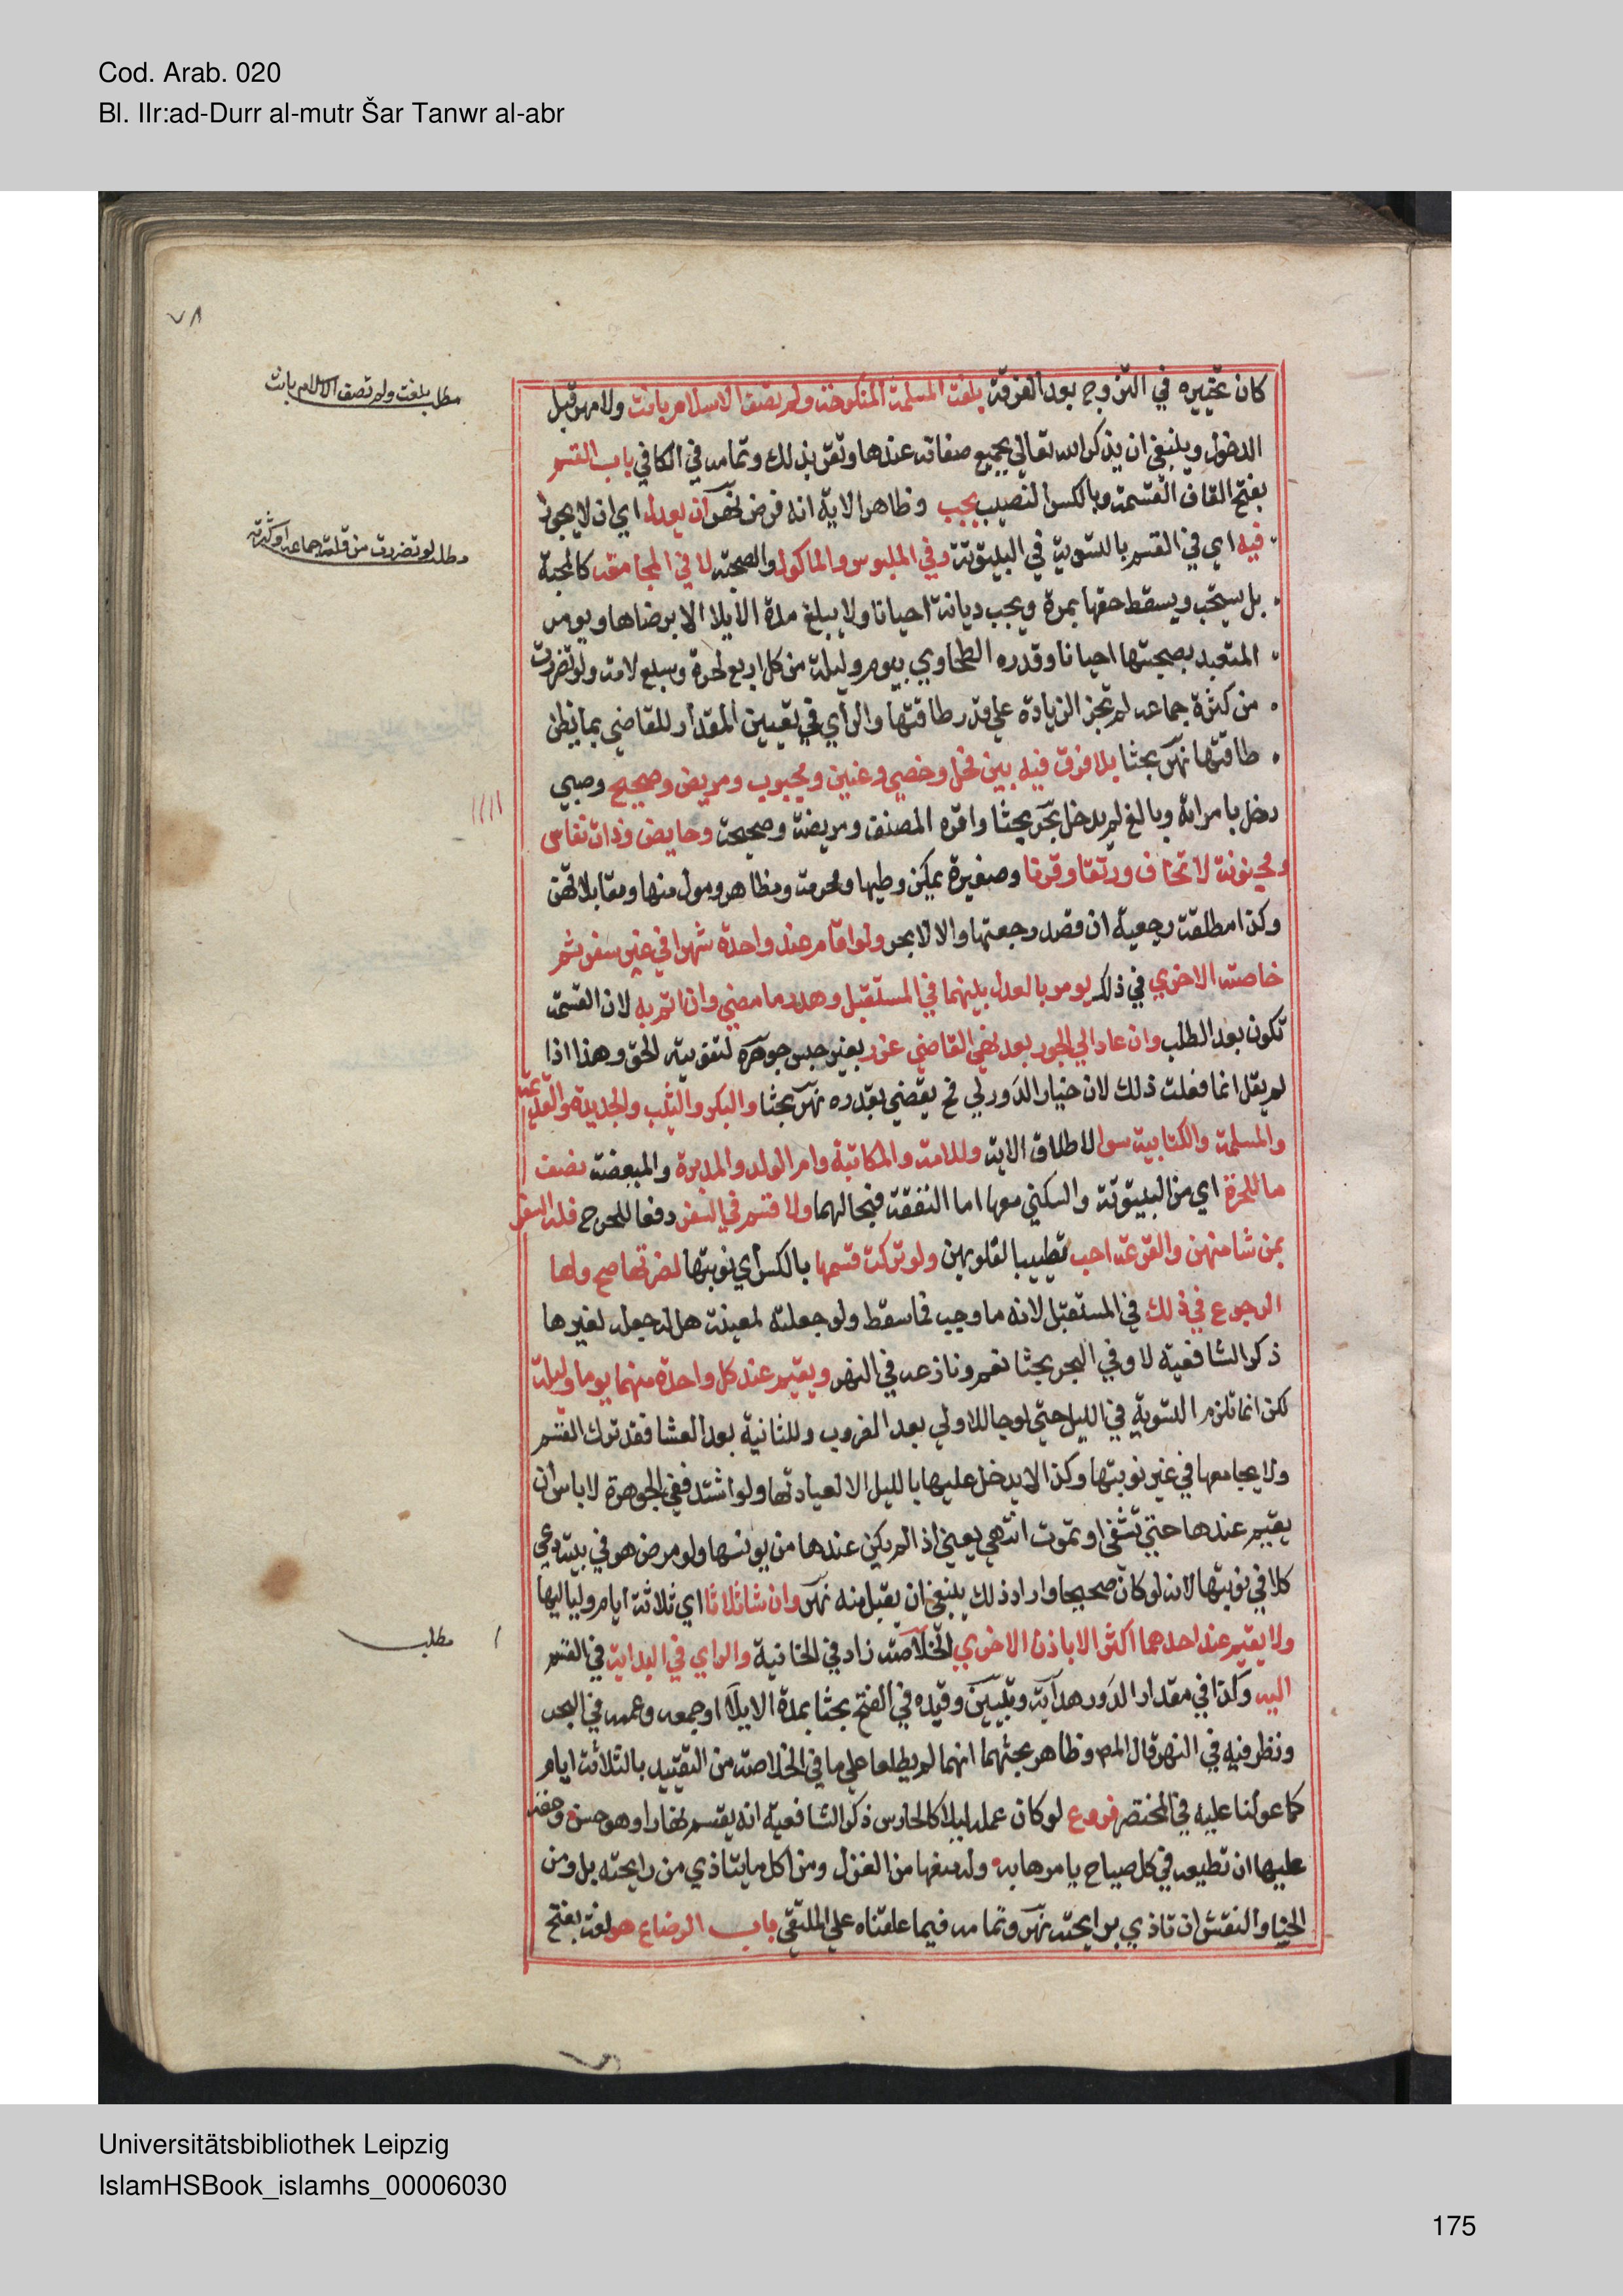 Cod. Arab. 020
Bl. IIr:ad-Durr al-mutr Šar Tanwr al-abr
٧٨
مطلب بلغت ولم تصف الاسلام بانت
مطلب لو تضررت من قلة جماعه او كثرته
كان تخييره في التزوج بعد الفرقة بلغت المسلمة المنكوحة ولم تصف الاسلام بانت ولا مهر قبل
الدخول وينبغي ان يذكر الله تعالى بجميع صفاته عندها وتقر بذلك وتمامه في الكافي باب القسم
بفتح القاف القسمة وبالكسر النصيب يجب وظاهر الاية انه فرض نهر ان يعدل اي ان لا يجوز
فيه اي في القسم بالتسوية في البيتوتة وفي الملبوس والماكول والصحبة لا في المجامعة كالمحبة
بل يستحب ويسقط حقها بمرة ويجب ديانة احيانا ولا يبلغ مدة الايلا الا برضاها ويومر
المتعبد بصحبتها احيانا وقدره الطحاوي بيوم وليلة من كل اربع لحرة وسبع لامة ولو تضررت
من كثرة جماعه لم تجز الزيادة على قدر طاقتها والراي في تعيين المقدار للقاضي بما يظن
طاقتها نهر بحثا بلا فرق فيه بين فحل وخصي وعنين ومجبوب ومريض وصحيح وصبي
دخل بامراته وبالغ لم يدخل بحر بحثا واقره المصنف ومريضة وصحيحة وحايض وذات نفاس
ومجنونة لا تخاف ورتقا وقرنا وصغيرة يمكن وطيها ومحرمة ومظاهر ومولى منها ومقابلاتهن
وكذا مطلقة رجعية ان قصد رجعتها والا لا بحر ولو اقام عند واحدة شهرا في غير سفر ثم
خاصمته الاخرى في ذلك يومر بالعدل بينهما في المستقبل وهدر ما مضى وان اثم به لان القسمة
تكون بعد الطلب وان عاد الى الجور بعد نهي القاضي عزر بغير حبس جوهرة لتفويته الحق وهذا اذا
لم يقل انما فعلت ذلك لان خيار الدور لي فح يقضي بقدره نهر بحثا والبكر والثيب والجديدة والقديمة
والمسلمة والكتابية سوا لاطلاق الاية وللامة والمكاتبة وام الولد والمدبرة والمبعضة نصف
ما للحرة اي من البيتوتة والسكنى معها اما النفقة فبحالهما ولا قسم في السفر دفعا للحرج فله السفر
بمن شا منهن والقرعة احب تطييبا لقلوبهن ولو تركت قسمها بالكسر اي نوبتها لضرتها صح ولها
الرجوع في ذلك في المستقبل لانه ما وجب فما سقط ولو جعلته لمعينة هل له جعله لغيرها
ذكر الشافعية لا وفي البحر بحثا نعم ونازعه في النهر ويقيم عند كل واحدة منهما يوما وليلة
لكن انما تلزم التسوية في الليل حتى لو جا للاولى بعد الغروب وللثانية بعد العشا فقد ترك القسم
ولا يجامعها في غير نوبتها وكذا لا يدخل عليها بالليل الا لعيادتها ولو اشتد ففي الجوهرة لا باس ان
يقيم عندها حتى تشفى او تموت انتهى يعني اذا لم يكن عندها من يونسها ولو مرض هو في بيته دعى
كلا في نوبتها لانه لو كان صحيحا واراد ذلك ينبغي ان يقبل منه نهر وان شا ثلاثا اي ثلاثة ايام ولياليها
مطلب
ولا يقيم عند احدهما اكثر الا باذن الاخرى الخلاصة زاد في الخانية والراي في البداية في القسم
اليه وكذا في مقدار الدور هداية وتبيين وقيده في الفتح بحثا بمدة الايلا او جمعه وعممه في البحر
ونظر فيه في النهر قال المص وظاهر بحثهما انهما لم يطلعا على ما في الخلاصة من التقييد بالثلاثة ايام
كما عولنا عليه في المختصر فروع لو كان عمله ليلا كالحارس ذكر الشافعية انه يقسم نهارا وهو حسن وحقه
عليها ان تطيعه في كل مباح يامرها به وله منعها من الغزل ومن اكل ما يتاذى من رايحته بل ومن
الحنا والنقش ان تاذى برايحته نهر وتمامه فيما علقناه على الملتقى باب الرضاع هو لغة بفتح
Universitätsbibliothek Leipzig
IslamHSBook_islamhs_00006030
175